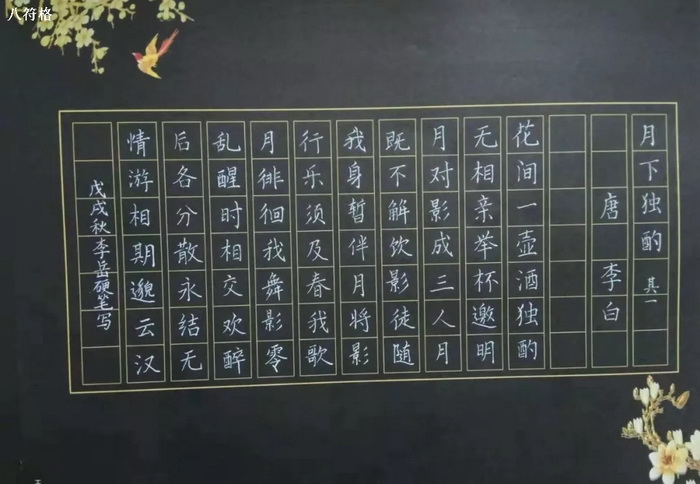 八符格
月下独酌 其一
唐 李白
花间一壶酒独酌
无相亲举杯邀明
月对影成三人月
既不解饮影徒随
我身暂伴月将影
行乐须及春我歌
月徘徊我舞影零
乱醒时相交欢醉
后各分散永结无
情游相期邈云汉
戊戌秋李岳硬笔写